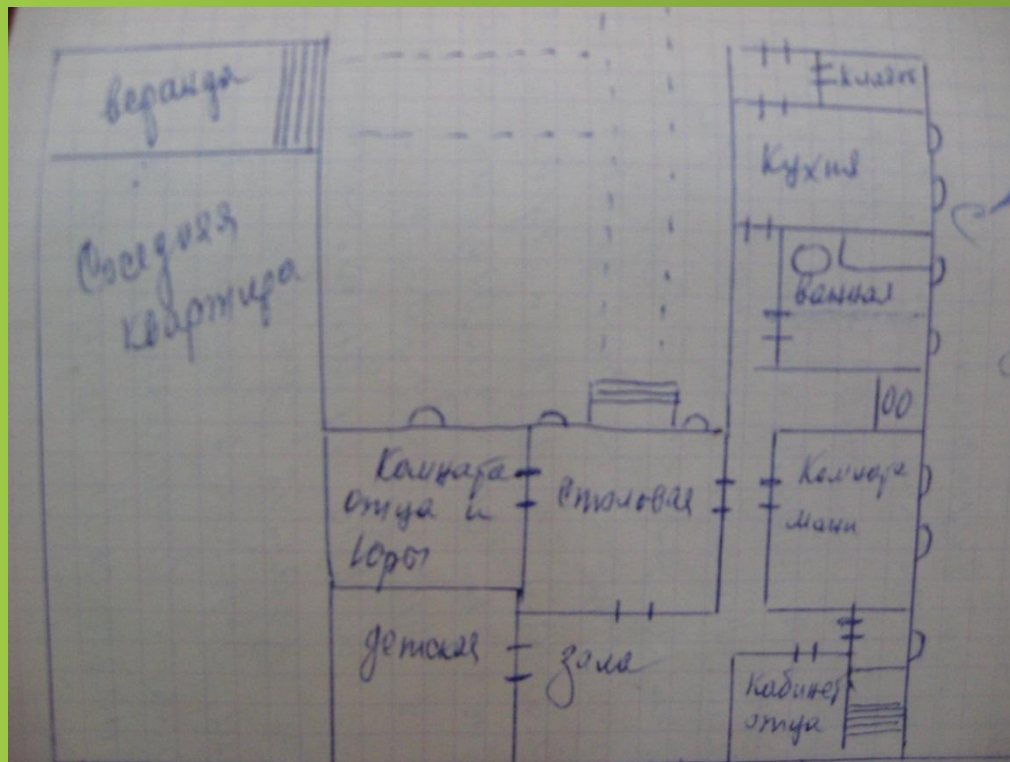 веранда
Соседняя
квартира
кладов
Кухня
ванная
00
Комната
отца и
Юры
столовая
Комната
мани
детская
зала
Кабинет
отца